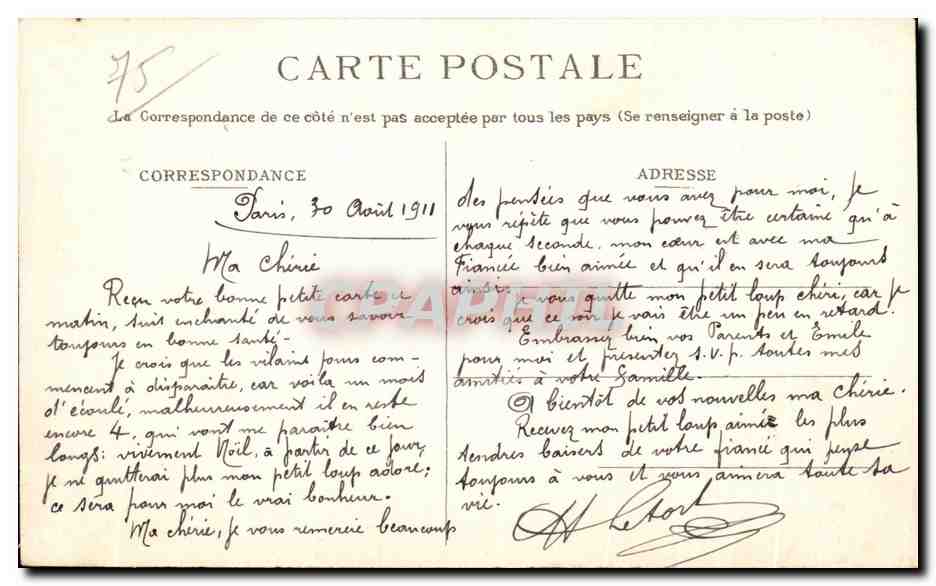 75
CARTE POSTALE
La Correspondance de ce côté n'est pas acceptée par tous les pays (Se renseigner à la poste)
CORRESPONDANCE
Paris, 30 Août 1911
Ma Chérie
Reçu votre bonne petite carte ce
matin, suis enchanté de vous savoir
toujours en bonne santé -
Je crois que les vilains jours com-
mencent à disparaître, car voila un mois
d'écoulé, malheureusement il en reste
encore 4, qui vont me paraître bien
longs: vivement Nöil, à partir de ce jour,
je ne quitterai plus mon petit loup adoré;
ce sera pour moi le vrai bonheur.
Ma chérie, je vous remercie beaucoup
ADRESSE
des pensées que vous avez pour moi, je
vous répète que vous pouvez être certaine qu'à
chaque seconde, mon cœur est avec ma
Fiancée bien aimée et qu'il en sera toujours
ainsi.
je vous quitte mon petit loup chéri, car je
crois que ce soir je vais être un peu en retard.
Embrassez bien vos Parents et Émile
pour moi et présentez s.v.p. toutes mes
amitiés à votre famille.
A bientôt de vos nouvelles ma Chérie.
Recevez mon petit loup aimée les plus
tendres baisers de votre fiancé qui pense
toujours à vous et vous aimera toute sa
vie.
H Letort
CPAPHIL